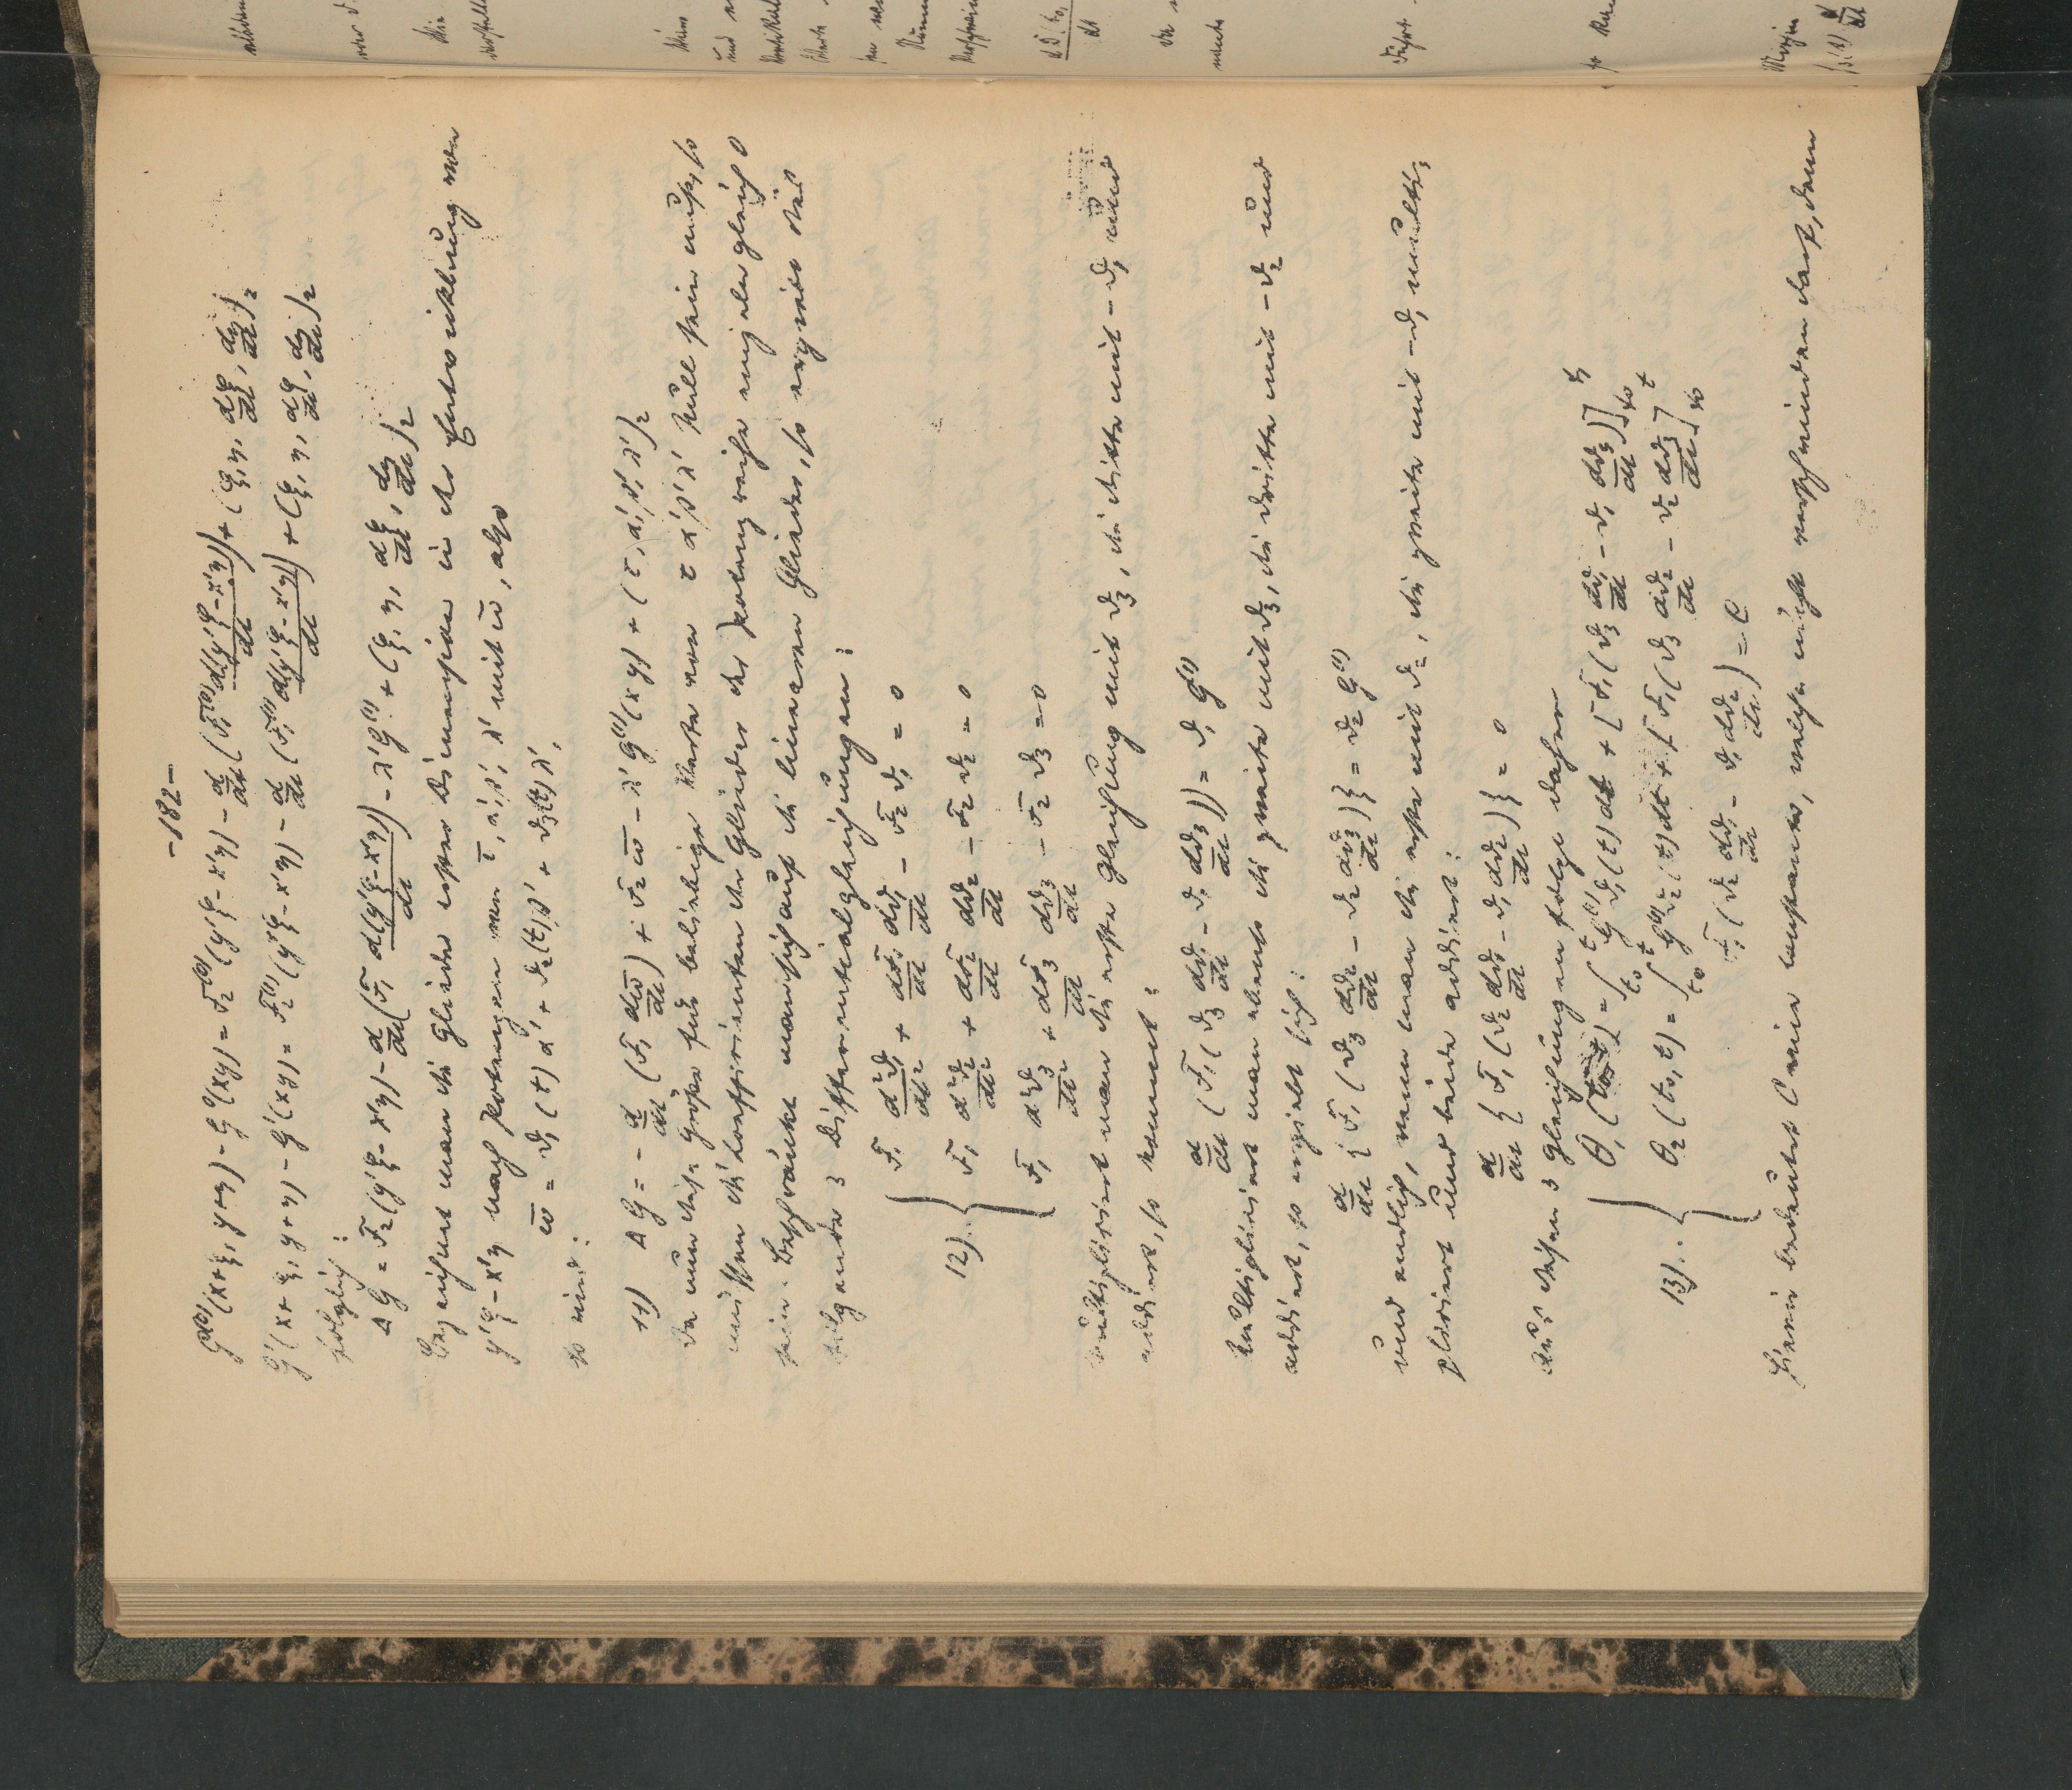 -182-
G⁽⁰⁾(x+ξ, y+η) - G⁰(xy) = F̄₂⁽⁰⁾(y'ξ - x'η) - d/dt (F̄₁⁽⁰⁾ d(y'ξ - x'η)/dt) + (ξ, η, dξ/dt, dη/dt)₂
G'(x+ξ, y+η) - G'(xy) = F̄₂⁽¹⁾(y'ξ - x'η) - d/dt (F̄₁⁽¹⁾ d(y'ξ - x'η)/dt) + (ξ, η, dξ/dt, dη/dt)₂
folglich:
Δ G = F̄₂(y'ξ - x'η) - d/dt (F̄₁ d(y'ξ - x'η)/dt) - λ' G⁽¹⁾ + (ξ, η, dξ/dt, dη/dt)₂
Bezeichnet man die Glieder erster Dimension in der Entwicklung von
y'ξ - x'η nach Potenzen von τ, α', β', λ' mit ω̄, also
ω̄ = ϑ₁(t) α' + ϑ₂(t) β' + ϑ₃(t) λ',
so wird:
11) Δ G = - d/dt (F̄₁ dω̄/dt) + F̄₂ ω̄ - λ' G⁽¹⁾(xy) + (τ, α', β', λ')₂
Da nun diese Größe für beliebige Werte von τ α' β' λ' Null sein muß, so
müssen die Coeffizienten der Glieder der Potenzreihe einzeln gleich 0
sein. Beschränkt man sich auf die linearen Glieder, so ergiebt das
folgende 3 Differentialgleichungen:
F̄₁ d²ϑ₁/dt² + dF̄₁/dt dϑ₁/dt - F̄₂ ϑ₁ = 0
12). F̄₁ d²ϑ₂/dt² + dF̄₁/dt dϑ₂/dt - F̄₂ ϑ₂ = 0
F̄₁ d²ϑ₃/dt² + dF̄₁/dt dϑ₃/dt - F̄₂ ϑ₃ = 0
multipliziert man die erste Gleichung mit ϑ₃, die dritte mit - ϑ₁ und
addiert, so kommt:
d/dt (F̄₁(ϑ₃ dϑ₁/dt - ϑ₁ dϑ₃/dt)) = ϑ₁ G⁽¹⁾
Multipliziert man ebenso die zweite mit ϑ₃, die dritte mit - ϑ₂ und
addiert, so ergiebt sich:
d/dt { F̄₁(ϑ₃ dϑ₂/dt - ϑ₂ dϑ₃/dt) } = ϑ₂ G⁽¹⁾
und endlich, wenn man die erste mit ϑ₂, die zweite mit -ϑ₁ multi=
pliziert und beide addiert:
d/dt { F̄₁(ϑ₂ dϑ₁/dt - ϑ₁ dϑ₂/dt) } = 0
Aus diesen 3 Gleichungen folgt daher
Θ₁(t₀,t) = ∫ₜ₀ᵗ G⁽¹⁾ ϑ₁(t) dt + [F̄₁(ϑ₃ dϑ₁/dt - ϑ₁ dϑ₃/dt)]ₜ₀ᵗ
13).. Θ₂(t₀,t) = ∫ₜ₀ᵗ G⁽¹⁾ ϑ₂(t) dt + [F̄₁(ϑ₃ dϑ₂/dt - ϑ₂ dϑ₃/dt]ₜ₀ᵗ
F̄₁(ϑ₂ dϑ₁/dt - ϑ₁ dϑ₂/dt) = C
Hierin bedeutet C eine Constante, welche nicht verschwinden darf, denn